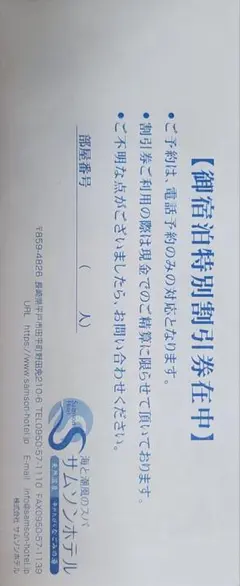 【御宿泊特別割引券在中】
●ご予約は、電話予約のみの対応となります。
●割引券ご利用の際は現金でのご精算に限らせて頂いております。
●ご不明な点がございましたら、お問い合わせください。
部屋番号 ( 人)
海と潮風のスパ
サムソンホテル
〒859-4826 長崎県平戸市田平町野田免210-6 TEL0950-57-1110 FAX0950-57-1139
URL https://www.samson-hotel.jp E-mail info@samson-hotel.jp
株式会社 サムソンホテル